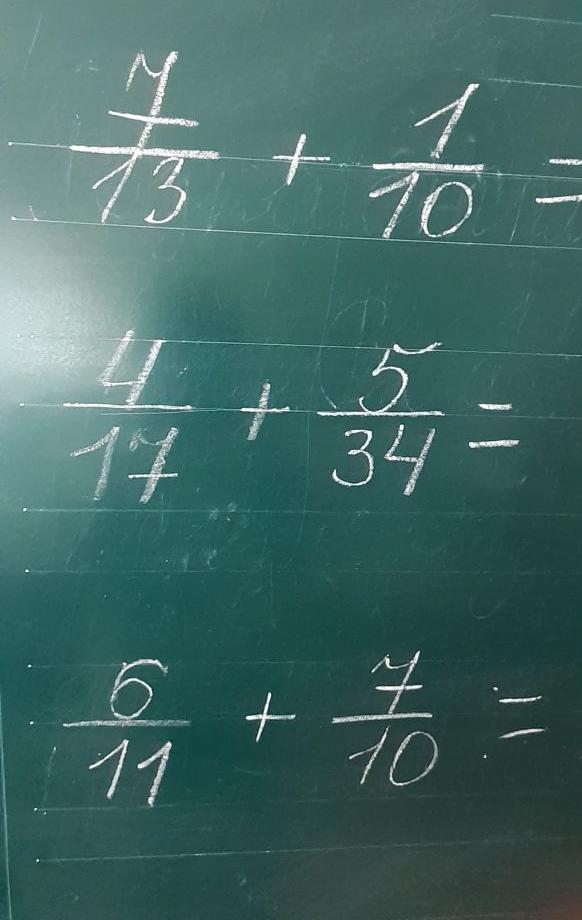 7/13 + 1/10 =
4/17 + 5/34 =
6/11 + 7/10 =